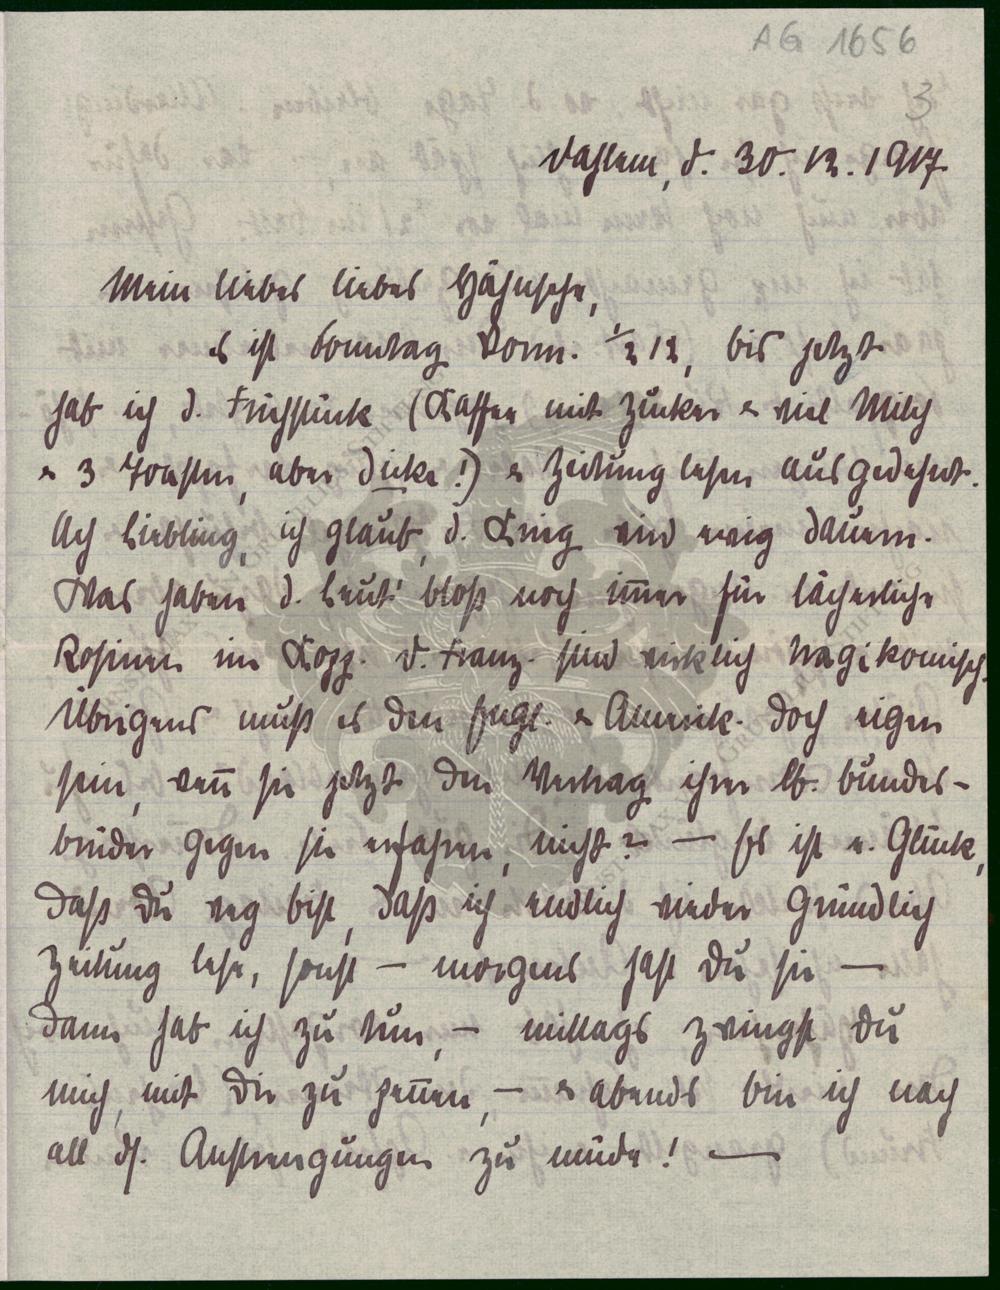 AG 1656
3
Dahlem, d. 30. 12. 1917.
Mein liebes liebes Hähnsche,
es ist Sonntag Vorm. 1/2 12, bis jetzt
hab ich d. Frühstück (Kaffee mit Zucker & viel Milch
& 3 Toasten, aber dicke!) & Zeitung lesen ausgedehnt.
Ach Liebling, ich glaub, d. Krieg wird ewig dauern.
Was haben d. Leut' bloß noch im̄er für lächerliche
Rosinen im Kopp. D. Franz. sind wirklich tragikomisch.
Übrigens muß es den Engl. & Amerik. doch eigen
sein, wen̄ sie jetzt den Vertrag ihrer lb. Bundes-
brüder gegen sie erfahren, nicht? — Es ist e. Glück,
daß Du weg bist, daß ich endlich wieder gründlich
Zeitung lese, sonst — morgens hast Du sie —
dann hab ich zu tun, — mittags zwingst Du
mich, mit Dir zu pen̄en, — & abends bin ich nach
all ds. Anstrengungen zu müde! —